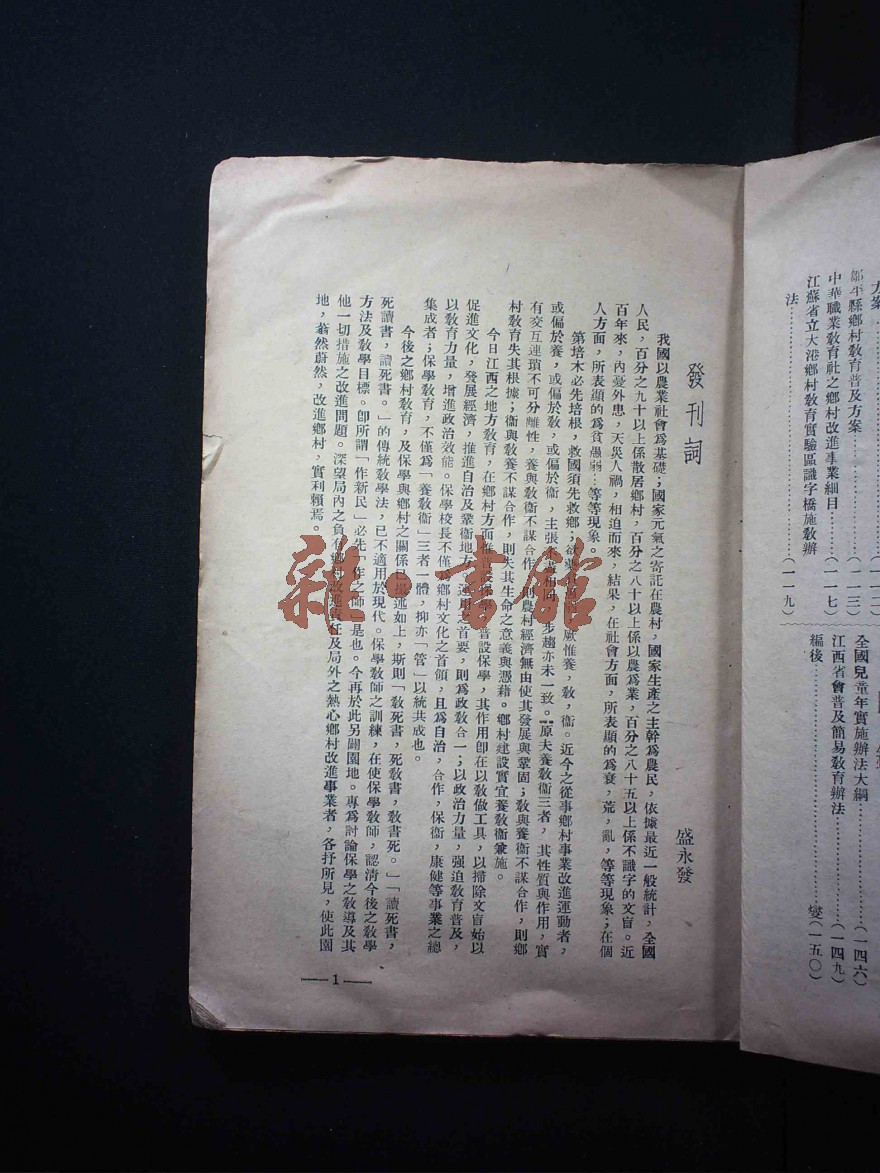 方案
鄒平縣鄉村教育普及方案……………(一一三)
中華職業教育社之鄉村改進事業細目……(一一七)
江蘇省立大港鄉村教育實驗區識字橋施教辦
法……………………(一一九)
全國兒童年實施辦法大綱……(一四六)
江西省會普及簡易教育辦法……(一四九)
編後……………………燮(一五〇)
發刊詞
盛永發
我國以農業社會爲基礎;國家元氣之寄託在農村,國家生產之主幹爲農民,依據最近一般統計,全國
人民,百分之九十以上係散居鄉村,百分之八十以上係以農爲業,百分之八十五以上係不識字的文盲。近
百年來,內憂外患,天災人禍,相迫而來,結果,在社會方面,所表顯的爲衰,荒,亂,等等現象;在個
人方面,所表顯的爲貧愚弱…等等現象。
第培木必先培根,救國須先救鄉;欲 厥惟養,教,衞。近今之從事鄉村事業改進運動者,
或偏於養,或偏於教,或偏於衞,主張不盡相同,步趨亦未一致。原夫養教衞三者,其性質與作用,實
有交互連瑣不可分離性,養與教衞不謀合作,則農村經濟無由使其發展與鞏固;教與養衞不謀合作,則鄉
村教育失其根據;衞與教養不謀合作,則失其生命之意義與憑藉。鄉村建設實宜養教衞兼施。
今日江西之地方教育,在鄉村方面惟普設保學,普設保學,其作用卽在以教做工具,以掃除文盲始以
促進文化,發展經濟,推進自治及鞏衞地方,運用之首要,則爲政教合一;以政治力量,强迫教育普及,
以教育力量,增進政治效能。保學校長不僅爲鄉村文化之首領,且爲自治,合作,保衞,康健等事業之總
集成者;保學教育,不僅爲「養教衞」三者一體,抑亦「管」以統共成也。
今後之鄉村教育,及保學與鄉村之關係已 述如上,斯則「教死書,死教書,教書死。」「讀死書,
死讀書,讀死書。」的傳統教學法,已不適用於現代。保學教師之訓練,在使保學教師,認清今後之教學
方法及教學目標。卽所謂「作新民」必先「作之師」是也。今再於此另闢園地。專爲討論保學之教導及其
他一切措施之改進問題。深望局內之負有鄉村改進責任及局外之熱心鄉村改進事業者,各抒所見,使此園
地,蓊然蔚然,改進鄉村,實利賴焉。
—1—
雜·書館